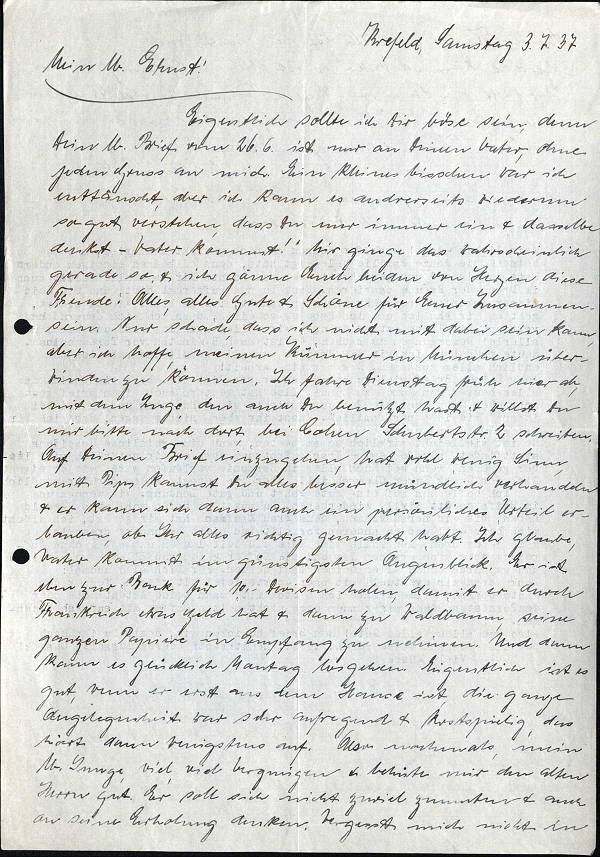 Krefeld, Samstag 3.7.37
Mein lb. Ernst!
Eigentlich sollte ich Dir böse sein, denn
Dein lb. Brief vom 26.6. ist nur an Deinen Vater, ohne
jeden Gruss an mich. Ein kleines bisschen war ich
enttäuscht, aber ich kann es andrerseits wiederum
so gut verstehen, dass Du nur immer ein & dasselbe
denkst - Vater kommt!! Mir ginge das wahrscheinlich
gerade so, & ich gönne Euch beiden von Herzen diese
Freude! Alles, alles Gute & Schöne für Euer Zusammen-
sein. Nur schade, dass ich nicht mit dabei sein kann,
aber ich hoffe, meinen Kummer in München über-
winden zu können. Ich fahre Dienstag früh hier ab,
mit dem Zuge, den auch Du benützt hast & willst Du
mir bitte nach dort bei Cohen Schubertstr. 2 schreiben.
Auf Deinen Brief einzugehen, hat wohl wenig Sinn,
mit Papa kannst Du alles besser mündlich verhandeln
& er kann sich dann auch ein persönliches Urteil er-
lauben, ob Ihr alles richtig gemacht habt. Ich glaube,
Vater kommt im günstigsten Augenblick. Er ist
eben zur Bank für 10.- Devisen holen, damit er durch
Frankreich etwas Geld hat & dann zu Waldbaum, seine
ganzen Papiere in Empfang zu nehmen. Und dann
kann es glücklich Montag losgehen. Eigentlich ist es
gut, wenn er erst aus dem Hause ist, die ganze
Angelegenheit war sehr aufregend & kostspielig, das
hört dann wenigstens auf. Also nochmals, mein
lb. Junge, viel viel Vergnügen & behüte mir den alten
Herrn gut. Er soll sich nicht zuviel zumuten & auch
an seine Erholung denken. Vergesst mich nicht in